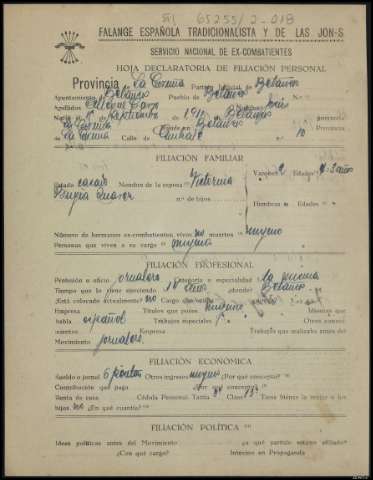 65255/2-018
FALANGE ESPAÑOLA TRADICIONALISTA Y DE LAS JON-S
SERVICIO NACIONAL DE EX-COMBATIENTES
HOJA DECLARATORIA DE FILIACIÓN PERSONAL
Provincia La Coruña Partido Judicial de Betanzos
Ayuntamiento Betanzos Pueblo de Betanzos
Apellidos
Nació el 1º Septiembre 1911 Betanzos provincia
La Coruña Reside en Betanzos
La Coruña Calle de n.º 10
FILIACIÓN FAMILIAR
Estado casado Nombre de la esposa Victorina Varones 2 Edades 4-3 años
n.º de hijos Hembras " Edades "
Número de hermanos ex-combatientes vivos no muertos ninguno
Personas que viven a su cargo ninguna
FILIACIÓN PROFESIONAL
Profesión u oficio jornalero Categoría o especialidad la misma
Tiempo que lo viene ejerciendo 18 años ¿dónde? Betanzos
¿Está colocado actualmente? no Cargo que
Empresa Títulos que posee ninguno Idiomas que
habla español Trabajos especiales Otras
maestros Trabajos que realizaba antes del
Movimiento jornalero
FILIACIÓN ECONÓMICA
Sueldo o jornal 6 pesetas Otros ingresos ninguno ¿Por qué concepto? "
Contribución que paga " ¿Por qué concepto? "
Renta de casa " Cédula Personal Tarifa 3ª Clase 13ª Tiene bienes la mujer o los
hijos no ¿En qué cuantía? "
FILIACIÓN POLÍTICA
Ideas políticas antes del Movimiento ¿a qué partido estuvo afiliado?
¿Con qué cargo? Intervino en Propaganda